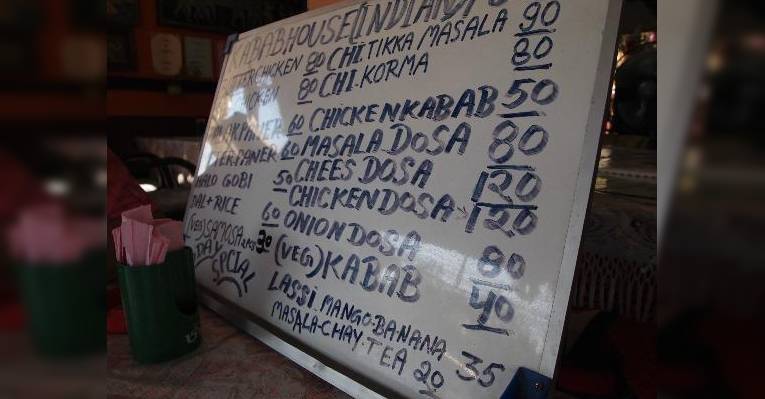 KABABHOUSE(INDIAN)
CHICKEN 80 CHI.TIKKA MASALA 90
80 CHI.KORMA 80
60 CHICKENKABAB 50
PANER 60 MASALA.DOSA 80
GOBI 50 CHEES DOSA 120
DAL+RICE CHICKENDOSA 120
60 ONIONDOSA 80
(VEG)SAMOSA 30 (VEG)KABAB 40
DAY SPCIAL
LASSI.MANGO.BANANA 35
MASALA-CHAY.TEA 20